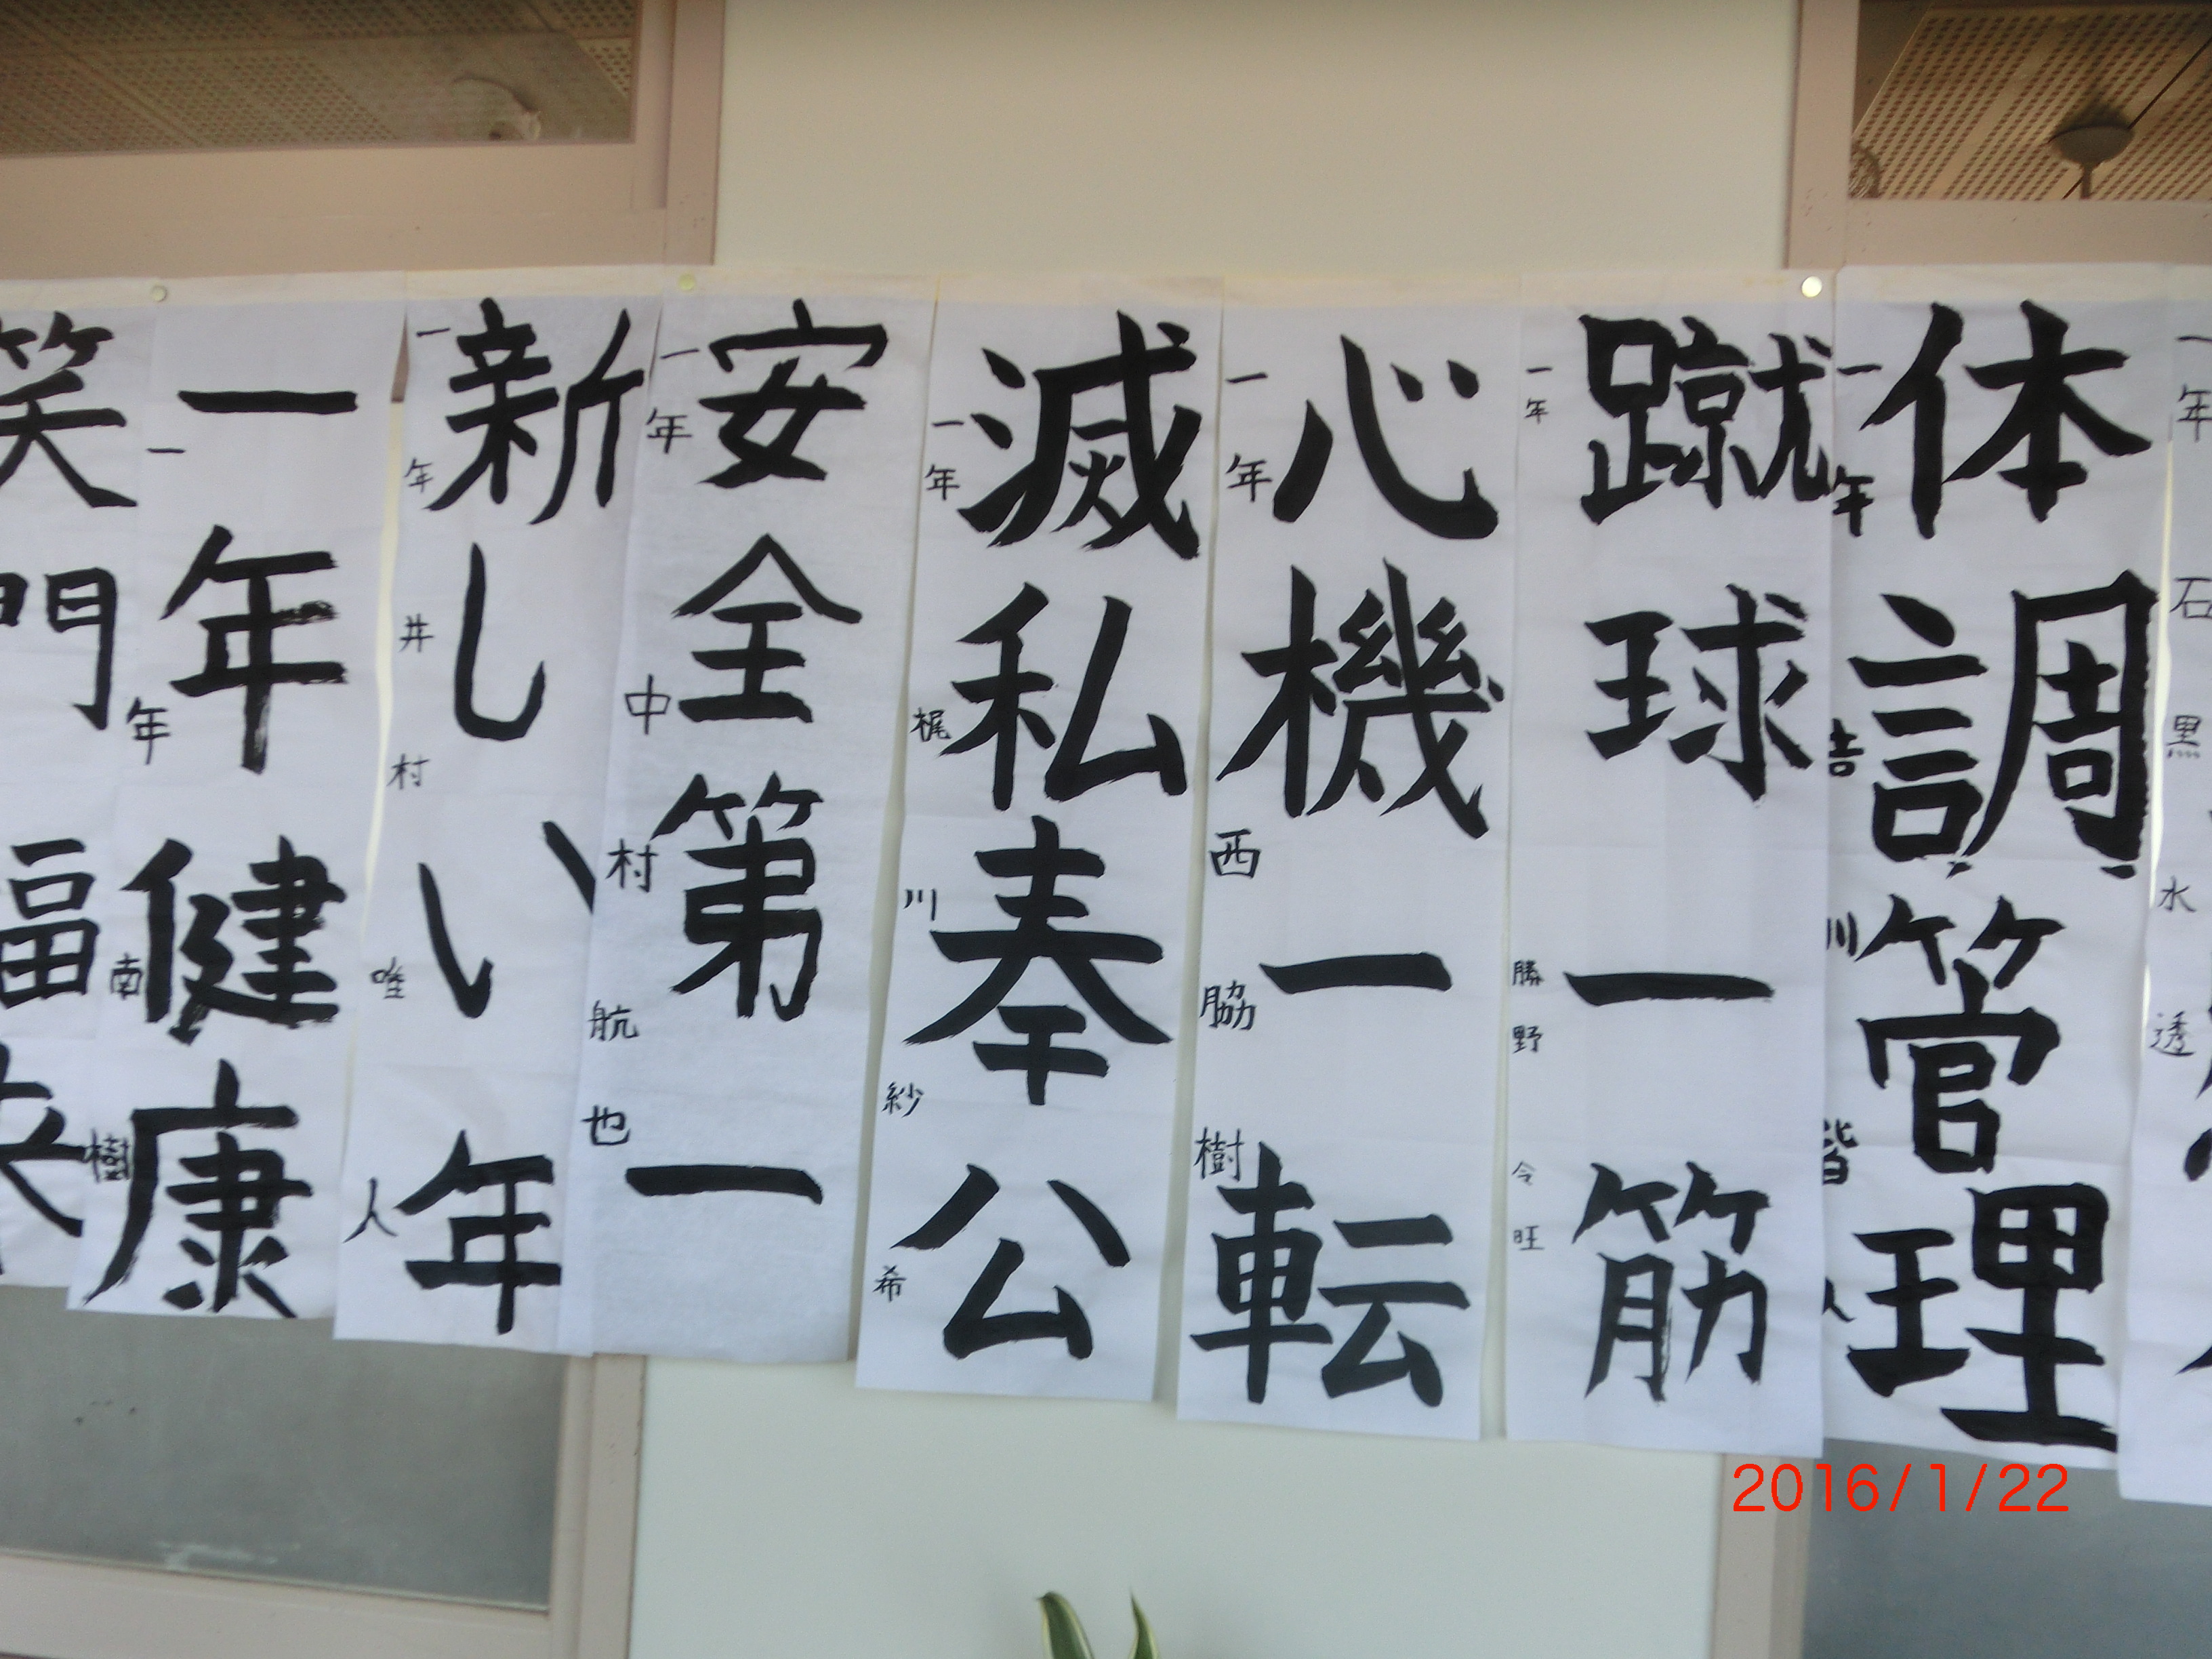 一年
石黒水透
体調管理
一年
吉川
人
蹴球一筋
一年
勝野
令旺
心機一転
一年
西脇
樹
滅私奉公
一年
梶川
紗希
安全第一
一年
中村
航也
新しい年
一年
井村
唯人
一年健康
一年
南
樹
笑門福来
2016/1/22